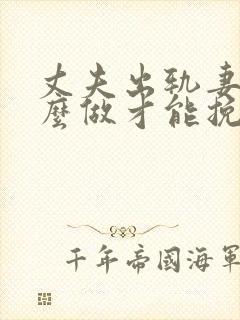 丈夫出轨妻
麼做才能挽
千年帝國海軍